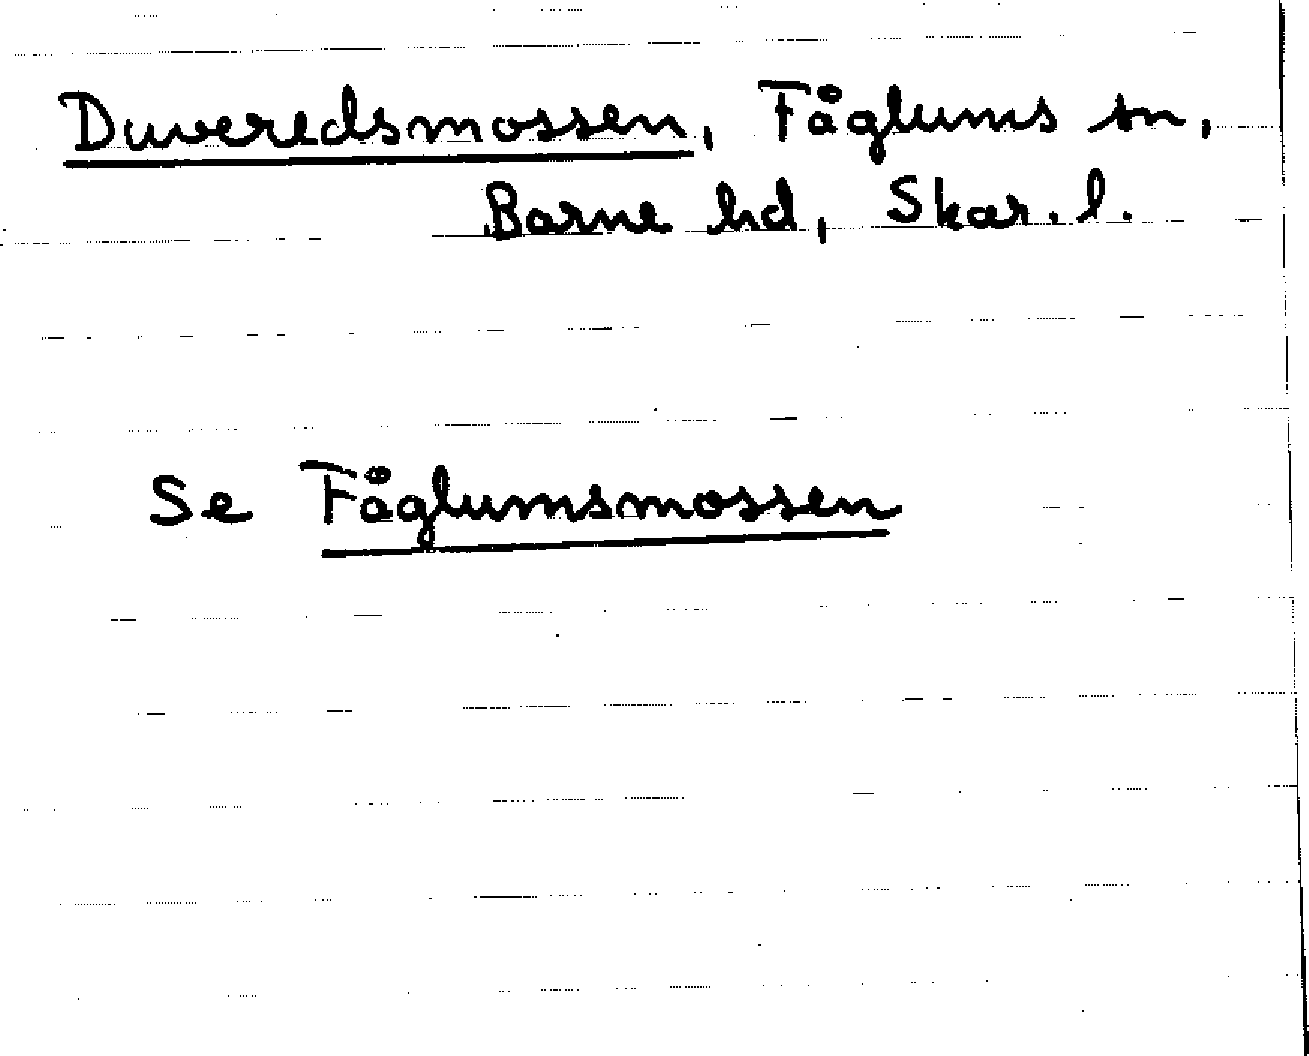 Duveredsmossen, Fåglums sn,
Barne hd, Skar. l.
Se Fåglumsmossen